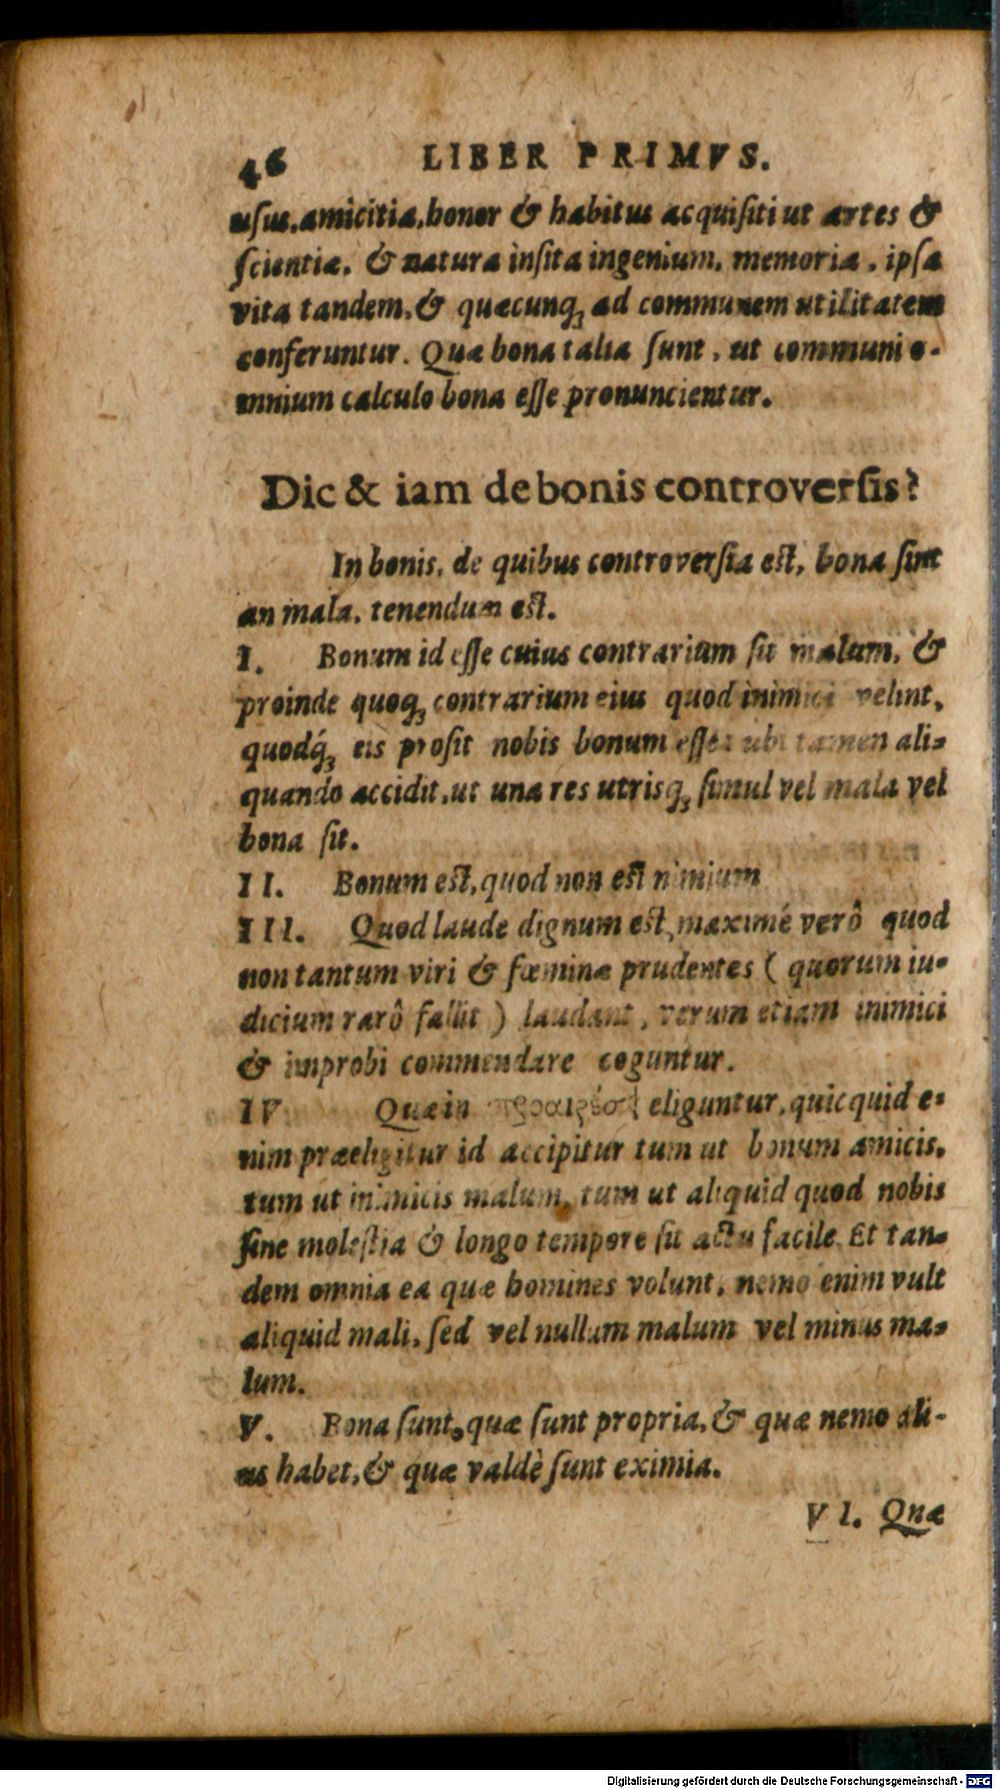 46 LIBER PRIMVS.
usus, amicitia, honor & habitus acquisiti ut artes &
scientiæ, & natura insita ingenium, memoria, ipsa
vita tandem, & quæcunq; ad communem utilitatem
conferuntur. Quæ bona talia sunt, ut communi o-
mnium calculo bona esse pronuncientur.
Dic & iam de bonis controversis?
In bonis, de quibus controversia est, bona sint
an mala, tenendum est.
I. Bonum id esse cuius contrarium sit malum, &
proinde quoq; contrarium eius quod inimici velint,
quodq́; eis prosit nobis bonum esse: ubi tamen ali-
quando accidit, ut una res utrisq; simul vel mala vel
bona sit.
II. Bonum est, quod non est nimium
III. Quod laude dignum est, maximé verô quod
non tantum viri & fœminæ prudentes ( quorum iu-
dicium rarô fallit ) laudant, verum etiam inimici
& improbi commendare coguntur.
IV Quæ in eliguntur, quicquid e-
nim præeligitur id accipitur tum ut bonum amicis,
tum ut inimicis malum, tum ut aliquid quod nobis
sine molestia & longo tempore sit actu facile. Et tan-
dem omnia ea quæ homines volunt, nemo enim vult
aliquid mali, sed vel nullum malum vel minus ma-
lum.
V. Bona sunt, quæ sunt propria, & quæ nemo ali-
us habet, & quæ valdè sunt eximia.
VI. Quæ
Digitalisierung gefördert durch die Deutsche Forschungsgemeinschaft - DFG